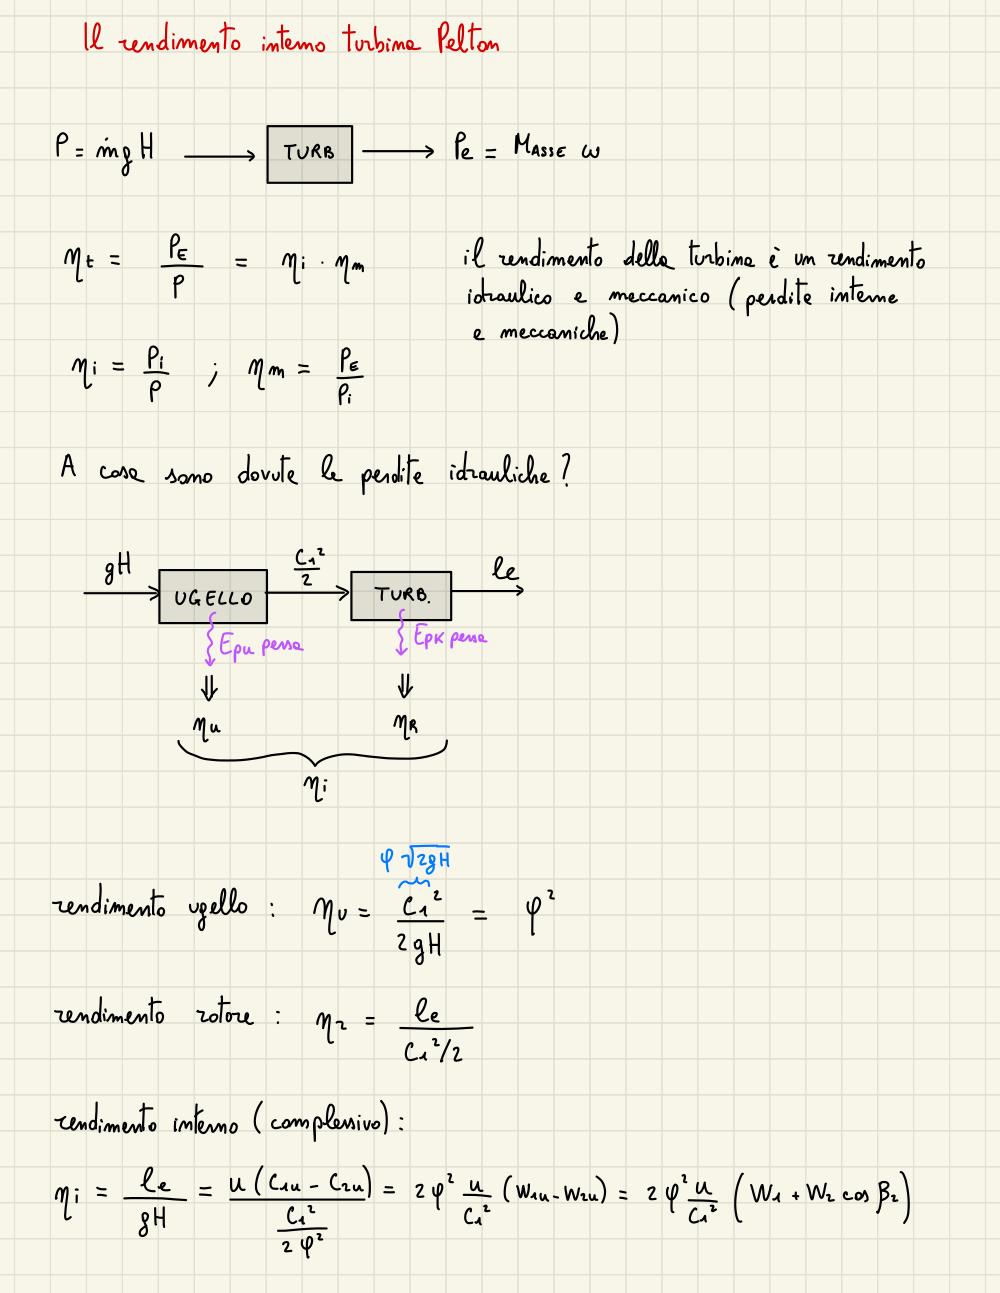 Il rendimento interno turbina Pelton
P = ṁgH → TURB → Pe = MASSE ω
ηt = PE / P = ηi · ηm
il rendimento della turbina è un rendimento
idraulico e meccanico (perdite interne
e meccaniche)
ηi = Pi / P ; ηm = PE / Pi
A cosa sono dovute le perdite idrauliche?
gH → UGELLO → C1²/2 → TURB. → le
Epu persa Epk persa
⇓ ⇓
ηu ηR
ηi
φ √2gH
rendimento ugello : ηu = C1² / 2gH = φ²
rendimento rotore : ηr = le / C1²/2
rendimento interno (complessivo) :
ηi = le / gH = u (C1u - C2u) / (C1² / 2φ²) = 2φ² u/C1² (W1u - W2u) = 2φ² u/C1² (W1 + W2 cos β2)